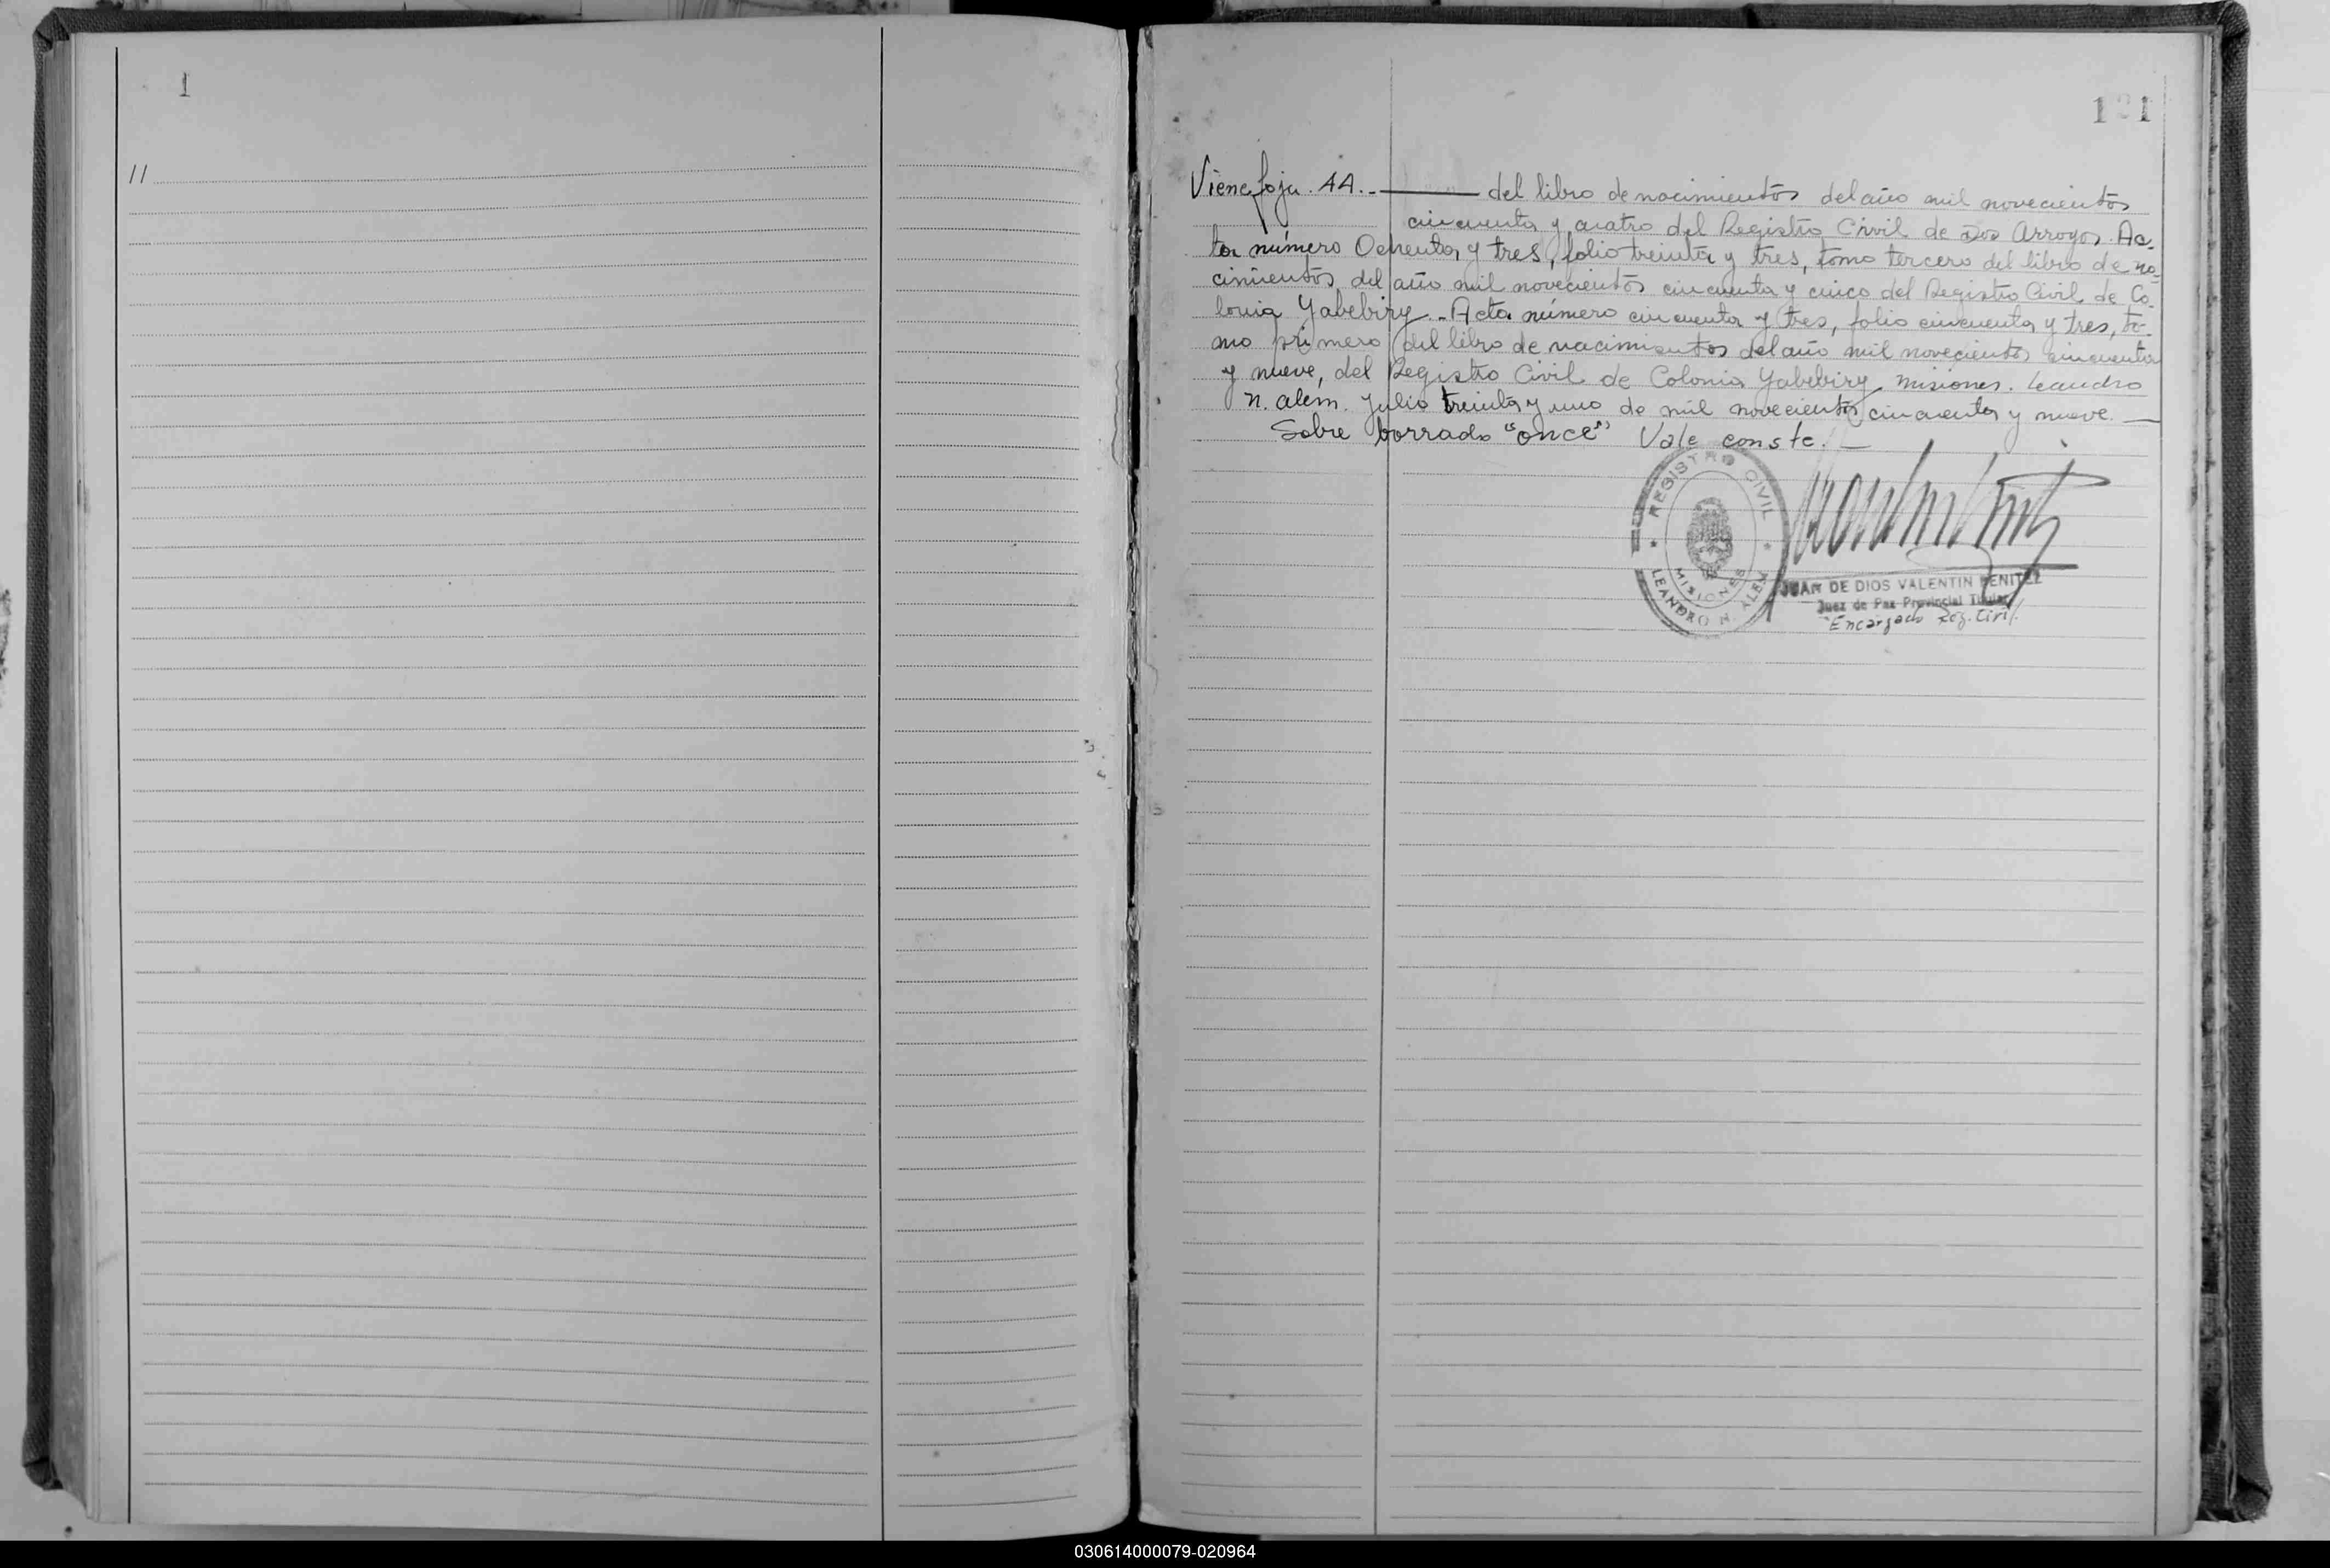 1
11
121
Viene foja 44.- del libro de nacimientos del año mil novecientos
cincuenta y cuatro del Registro Civil de Dos Arroyos. Ac-
ta número Ochenta y tres, folio treinta y tres, tomo tercero del libro de na-
cimientos del año mil novecientos cincuenta y cinco del Registro Civil de Co-
lonia Yabebiry.- Acta número cincuenta y tres, folio cincuenta y tres, to-
mo primero del libro de nacimientos del año mil novecientos cincuenta
y nueve, del Registro Civil de Colonia Yabebiry, Misiones. Leandro
N. Alem. Julio treinta y uno de mil novecientos cincuenta y nueve.
Sobre borrado "once" Vale conste.
REGISTRO CIVIL
MISIONES
LEANDRO N. ALEM
JUAN DE DIOS VALENTIN BENITEZ
Juez de Paz Provincial Titular
Encargado Reg. Civil
030614000079-020964